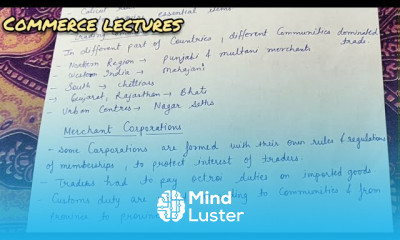 COMMERCE LECTURES
essential items
In different part of Countries, different Communities dominated
trade.
- Northern Region → Punjabi & multani merchants
- Western India → Mahajan
- South → chettiars
→ Gujarat, Rajasthan → Bhats
- Urban Centres → Nagar Seths
Merchant Corporations
- Some Corporations are formed with their own rules & regulations
of memberships, to protect interest of traders.
- Traders had to pay octroi duties on imported goods
- Customs duty are to Communities & from
province to
Mind
Luster